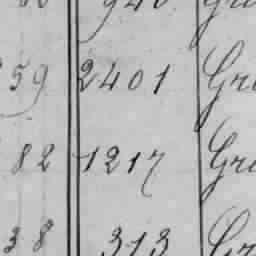 59 2401 Gr
82 1217 Gr
38 313 Gr